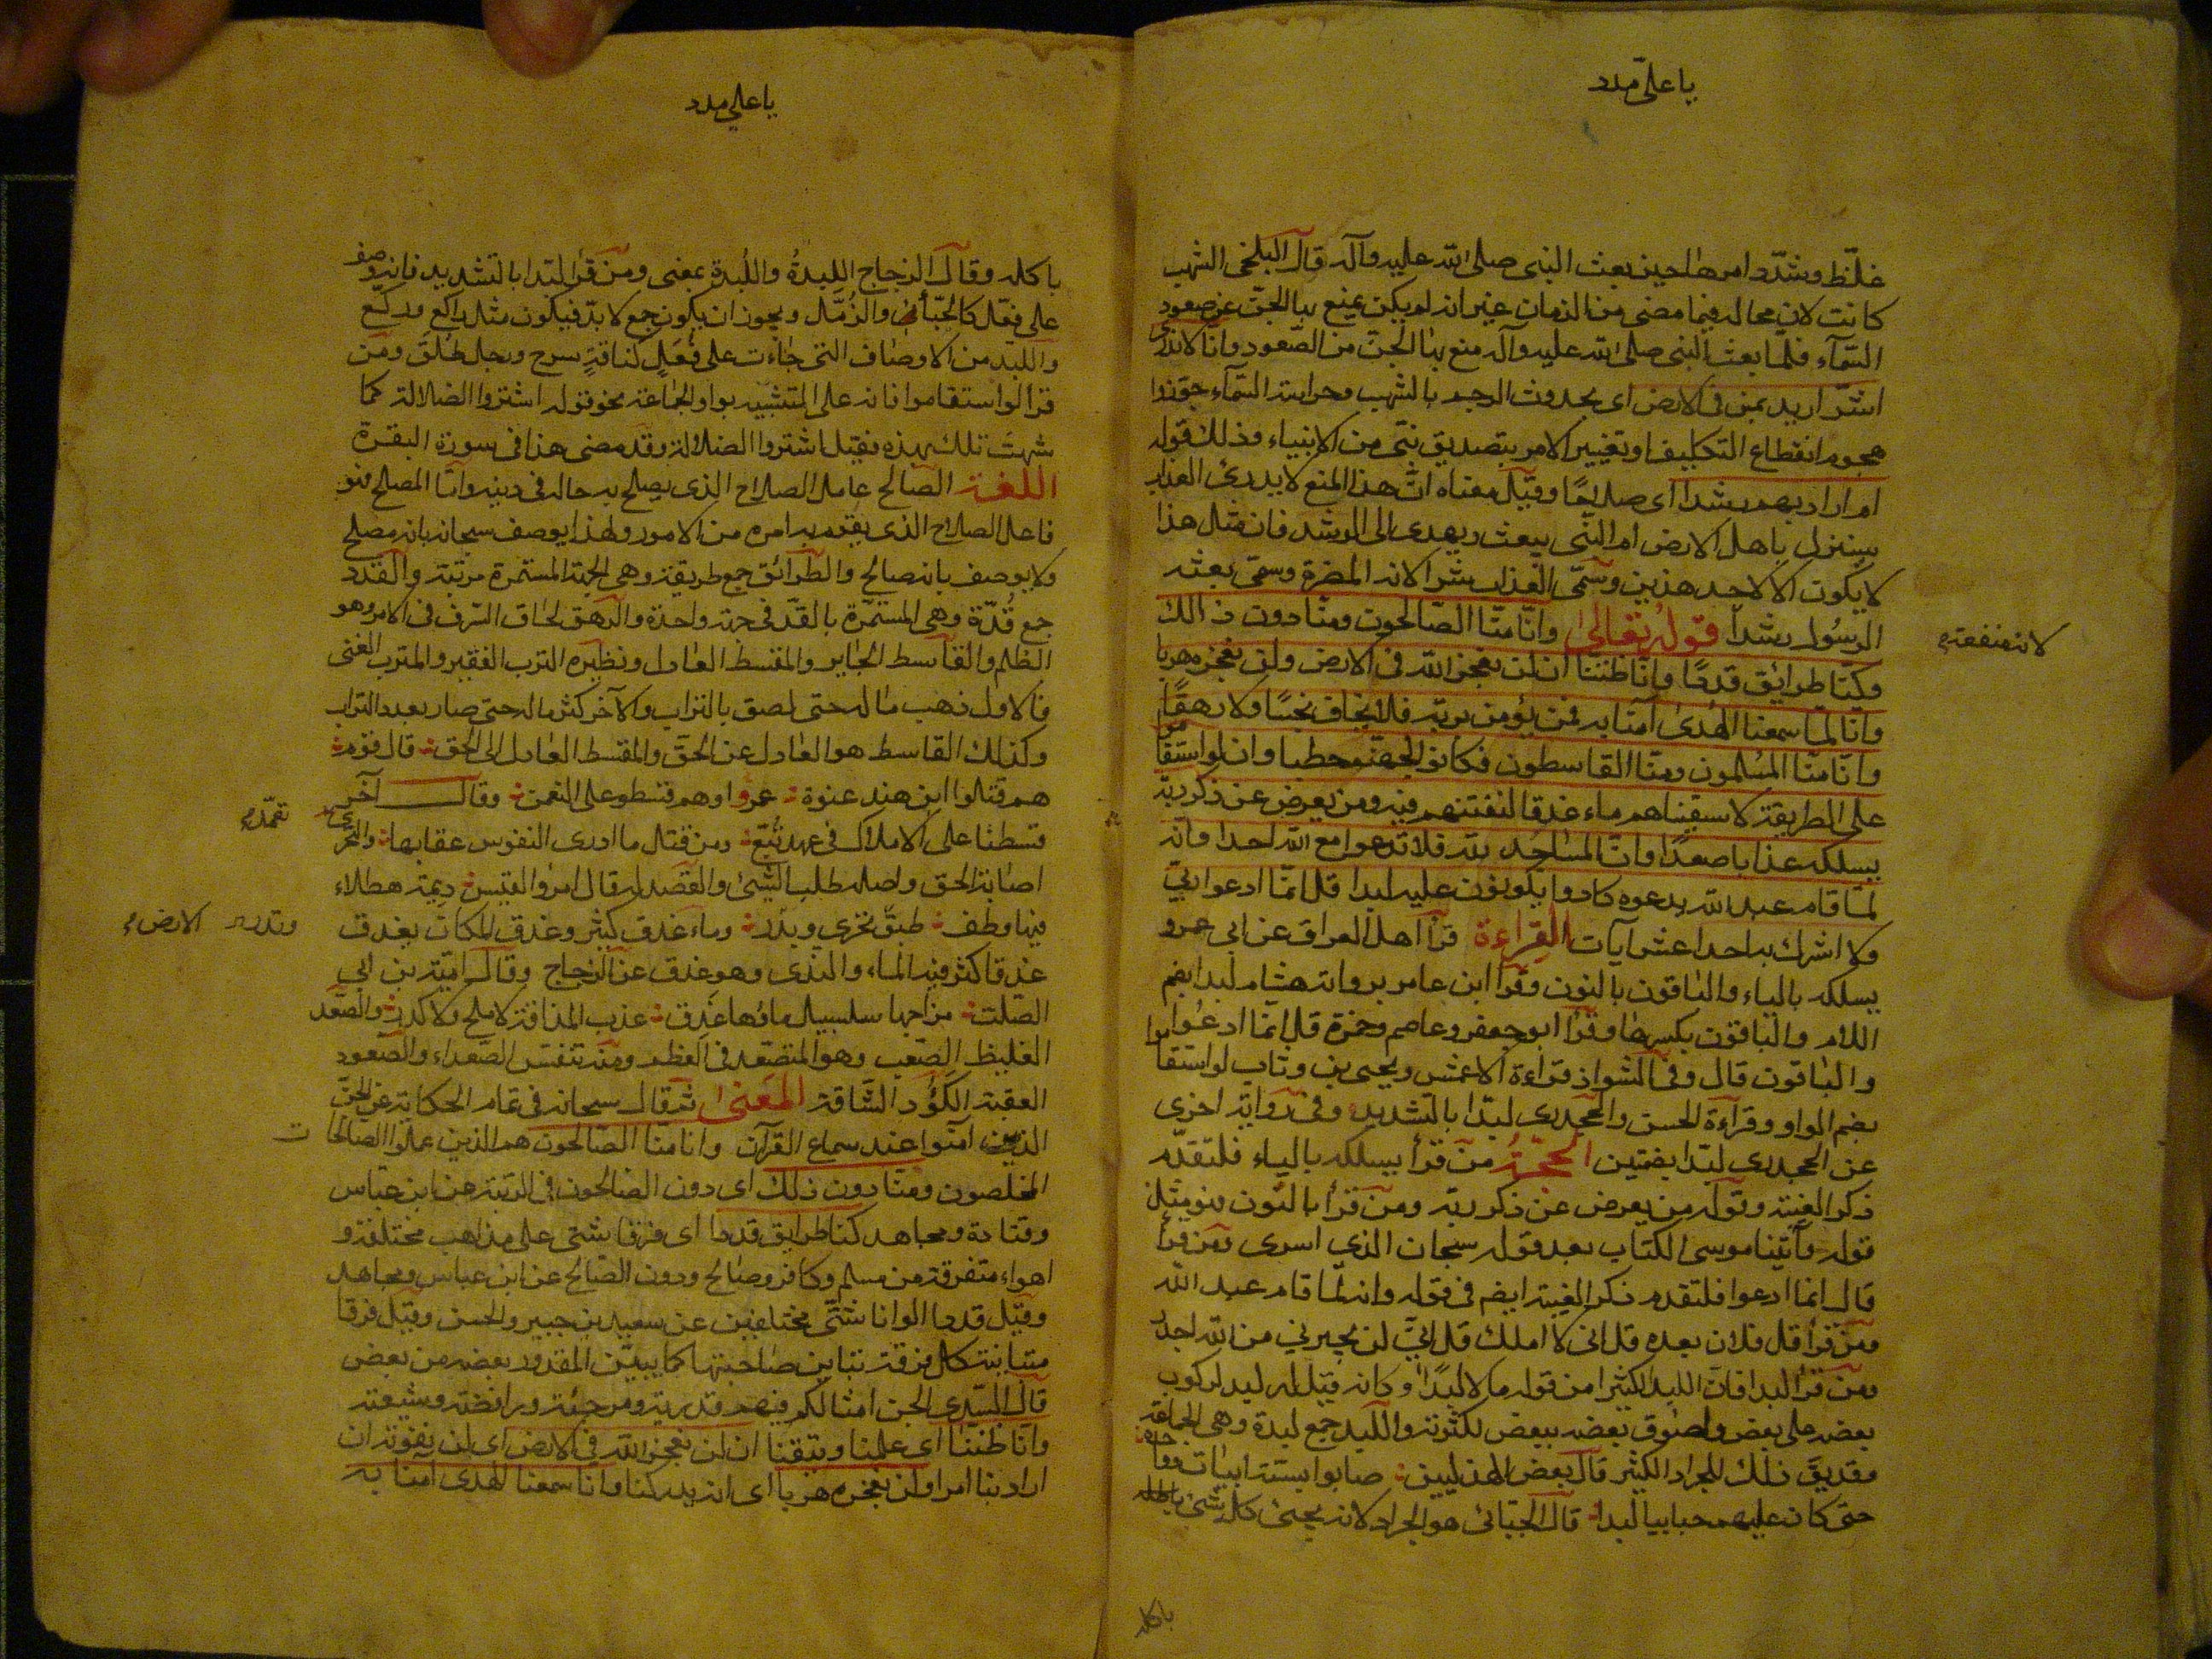 يا علي مدد
غلّظ وشدّد امرها حين بعث النبى صلى الله عليه وآله قال البلخى الشهب
كانت لا محالة فيما مضى من الزمان غير انه لم يكن يمنع بها الجنّ عن صعود
السّمآء فلمّا بعث النبى صلى الله عليه وآله منع بها الجنّ من الصّعود وانا لا ندرى
اشرّ اريد بمن فى الارض اى بحدوث الرجم بالشهب وحراسة السّمآء جوّزوا
هجوم انقطاع التكليف او تغيير الامر بتصديق نبّى من الانبياء وذلك قوله
ام اراد بهم ربهم رشدا اى صلاحًا وقيل معناه انّ هذا المنع لا يدرى العذاب
سينزل باهل الارض ام النّبى يبعث ويهدى الى الرشد فان مثل هذا
لا يكون الا لاحد هذين وسمّى العذاب شرا لانه المضرة وسمّى بعثه
الرسُول رشداً قوله تعالى وانّا منّا الصّالحون ومنّا دون ذالك
لانه منفعة
وكنّا طرايق قددًا وانّا ظننّا ان لن نعجز الله فى الارض ولن نعجزه هربا
وانّا لمّا سمعنا الهُدىٰ آمنّا به فمن يؤمن بربّه فلا يخاف بخسًا ولا رهقًا
وانّا منّا المُسلمون ومنّا القاسطون فكانوا لجهنّم حطبا وان لو استقاموا
على الطريقة لاسقيناهم ماء غدقا لنفتنهم فيه ومن يعرض عن ذكر ربّه
يسلكه عذابا صعدًا وانّ المسَاجد لله فلا تدعوا مع الله احدا وانّه
لمّا قام عبد الله يدعوه كادوا يكونون عليه لبدا قل انّما ادعوا ربّي
ولا اشرك به احدا عشر آيات القراءة قرأ اهل العراق عن ابى عمرو
يسلكه بالياء والباقون بالنون وقرأ ابن عامر برواية هشام لبدا بضم
اللام والباقون بكسرها وقرأ ابو جعفر وعاصم وحمزة قل انّما ادعُوا
والباقون قال وفى الشواذ قراءة الاعمش ويحيى بن وثاب لو استقاموا
بضم الواو وقراءة الحسن والجحدرى لبّدا بالتشديد وفى رواية اخرى
عن الجحدرى لبدا بضمتين الحجّةُ من قرأ يسلكه بالياء فلتقدّم
ذكر الغيبة وقوله من يعرض عن ذكر ربه ومن قرأ بالنّون فهو مثل
قوله وآتينا موسى الكتاب بعد قوله سبحان الذى اسرى ومن قرأ
قال انما ادعوا فلتقدم ذكر الغيبة ايضم فى قوله وانه لمّا قام عبد الله
ومن قرأ قل فلان بعده قل انى لا املك قل انّي لن يجيرنى من الله احد
ومن قرأ لبدا فانّ اللبد الكثير من قوله مالا لبدًا وكانه قيل له لبد لركوب
بعضه على بعض ولصوق بعضه ببعض لكثرته واللبد جمع لبدة وهى الجماعة
وقد يقال ذلك للجراد الكثير قال بعض الهذليين صابوا بستة ابيات وواحدة
حتى كان عليهم جابيا لبدا قال الجبّائى هو الجراد لانه يجبى كل شئ ياكله
باكله
يا علي مدد
باكله وقال الزجاج اللبدةُ واللُبدة بمعنى ومن قرأ لبّدا بالتشديد فانه وصف
على فعّل كالجُبّأ والزُمَّل ويجوز ان يكون جمع لابدّ فيكون مثل راكع وركّع
واللُبُد من الاوصاف التى جاءت على فُعُل كناقةٍ سرح ورجل طُلُق ومن
قرأ لو استقاموا فانه على التشبيه بواو الجماعة نحو قوله اشتروا الضلالة كما
شبهت تلك بهذه فقيل اشتروا الضلالة وقد مضى هذا فى سورة البقرة
اللغة الصالح عامل الصلاح الذى يصلح به حاله فى دينه وامّا المصلح فهو
فاعل الصلاح الذى يقوم به امره من الامور ولهذا يوصف سبحانه بانه مصلح
ولا يوصف بانه صالح والطرائق جمع طريقة وهى الجهة المستمرة مرتبة والقدد
جمع قُدّة وهى المستمّرة بالقدّ فى جهة واحدة والرهق لحاق السّرف فى الامر وهو
الظلم والقاسط الجاير والمقسط العادل ونظيره الترب الفقير والمترب الغنى
فالاول ذهب ماله حتى لصق بالتراب والآخر كثر ماله حتى صار بعدد التراب
وكذلك القاسط هو العادل عن الحقّ والمقسط العادل الى الحق قال قوم
هم قتلوا ابن هند عنوة عمروا وهم قسطو على النعمن وقال آخر
قسطنا على الاملاك فى عهد تُبّع ومن قبل ما ادرى النفوس عقابها والتحرّى
تعمّد
اصابة الحق واصله طلب الشئ والقصد له قال امرؤ القيس ديمة هطلاء
فيها وطف طبق تحرّي وتدر وماء غدق كثير وغدق المكان يغدق
وتدر الارض
غدقا كثر فيه الماء والندى وهو غدق عن الزجاج وقال اميّة بن ابي
الصّلت مزاجها سلسبيل ماؤها غدق عذب المذاقة لا ملح ولا كدر والصّعد
الغليظ الصّعب وهو المتصّعد فى العظم ومنه تنفس الصّعداء والصّعود
العقبة الكؤُد الشّاقة المعنىٰ ثم قال سبحانه فى تمام الحكاية عن الجنّ
الذين آمنوا عند سماع القرآن وانا منّا الصّالحون هم الذين عملوا الصّالحات
المخلصون ومنّا دون ذلك اى دون الصّالحون فى الرّتبة عن ابن عباس
وقتادة ومجاهد كنّا طرايق قددا اى فرقا شتى على مذاهب مختلفة و
اهواء متفرقة من مسلم وكافر وصالح ودون الصّالح عن ابن عباس ومجاهد
وقيل قددا الوانا شتّى مختلفين عن سعيد بن جبير والحسن وقيل فرقا
متباينة كل فرقة تباين صاحبتها كما يبين المقدود بعضه من بعض
قال السّدى الجن امثالكم فيهم قدرية ومرجئة ورافضة وشيعة
وانّا ظننّا اى علمنا وتيقنا ان لن نعجز الله فى الارض اى لن نفوته ان
اراد بنا امرا ولن نعجزه هربا اى انه يدركنا وانا سمعنا الهدى آمنا به